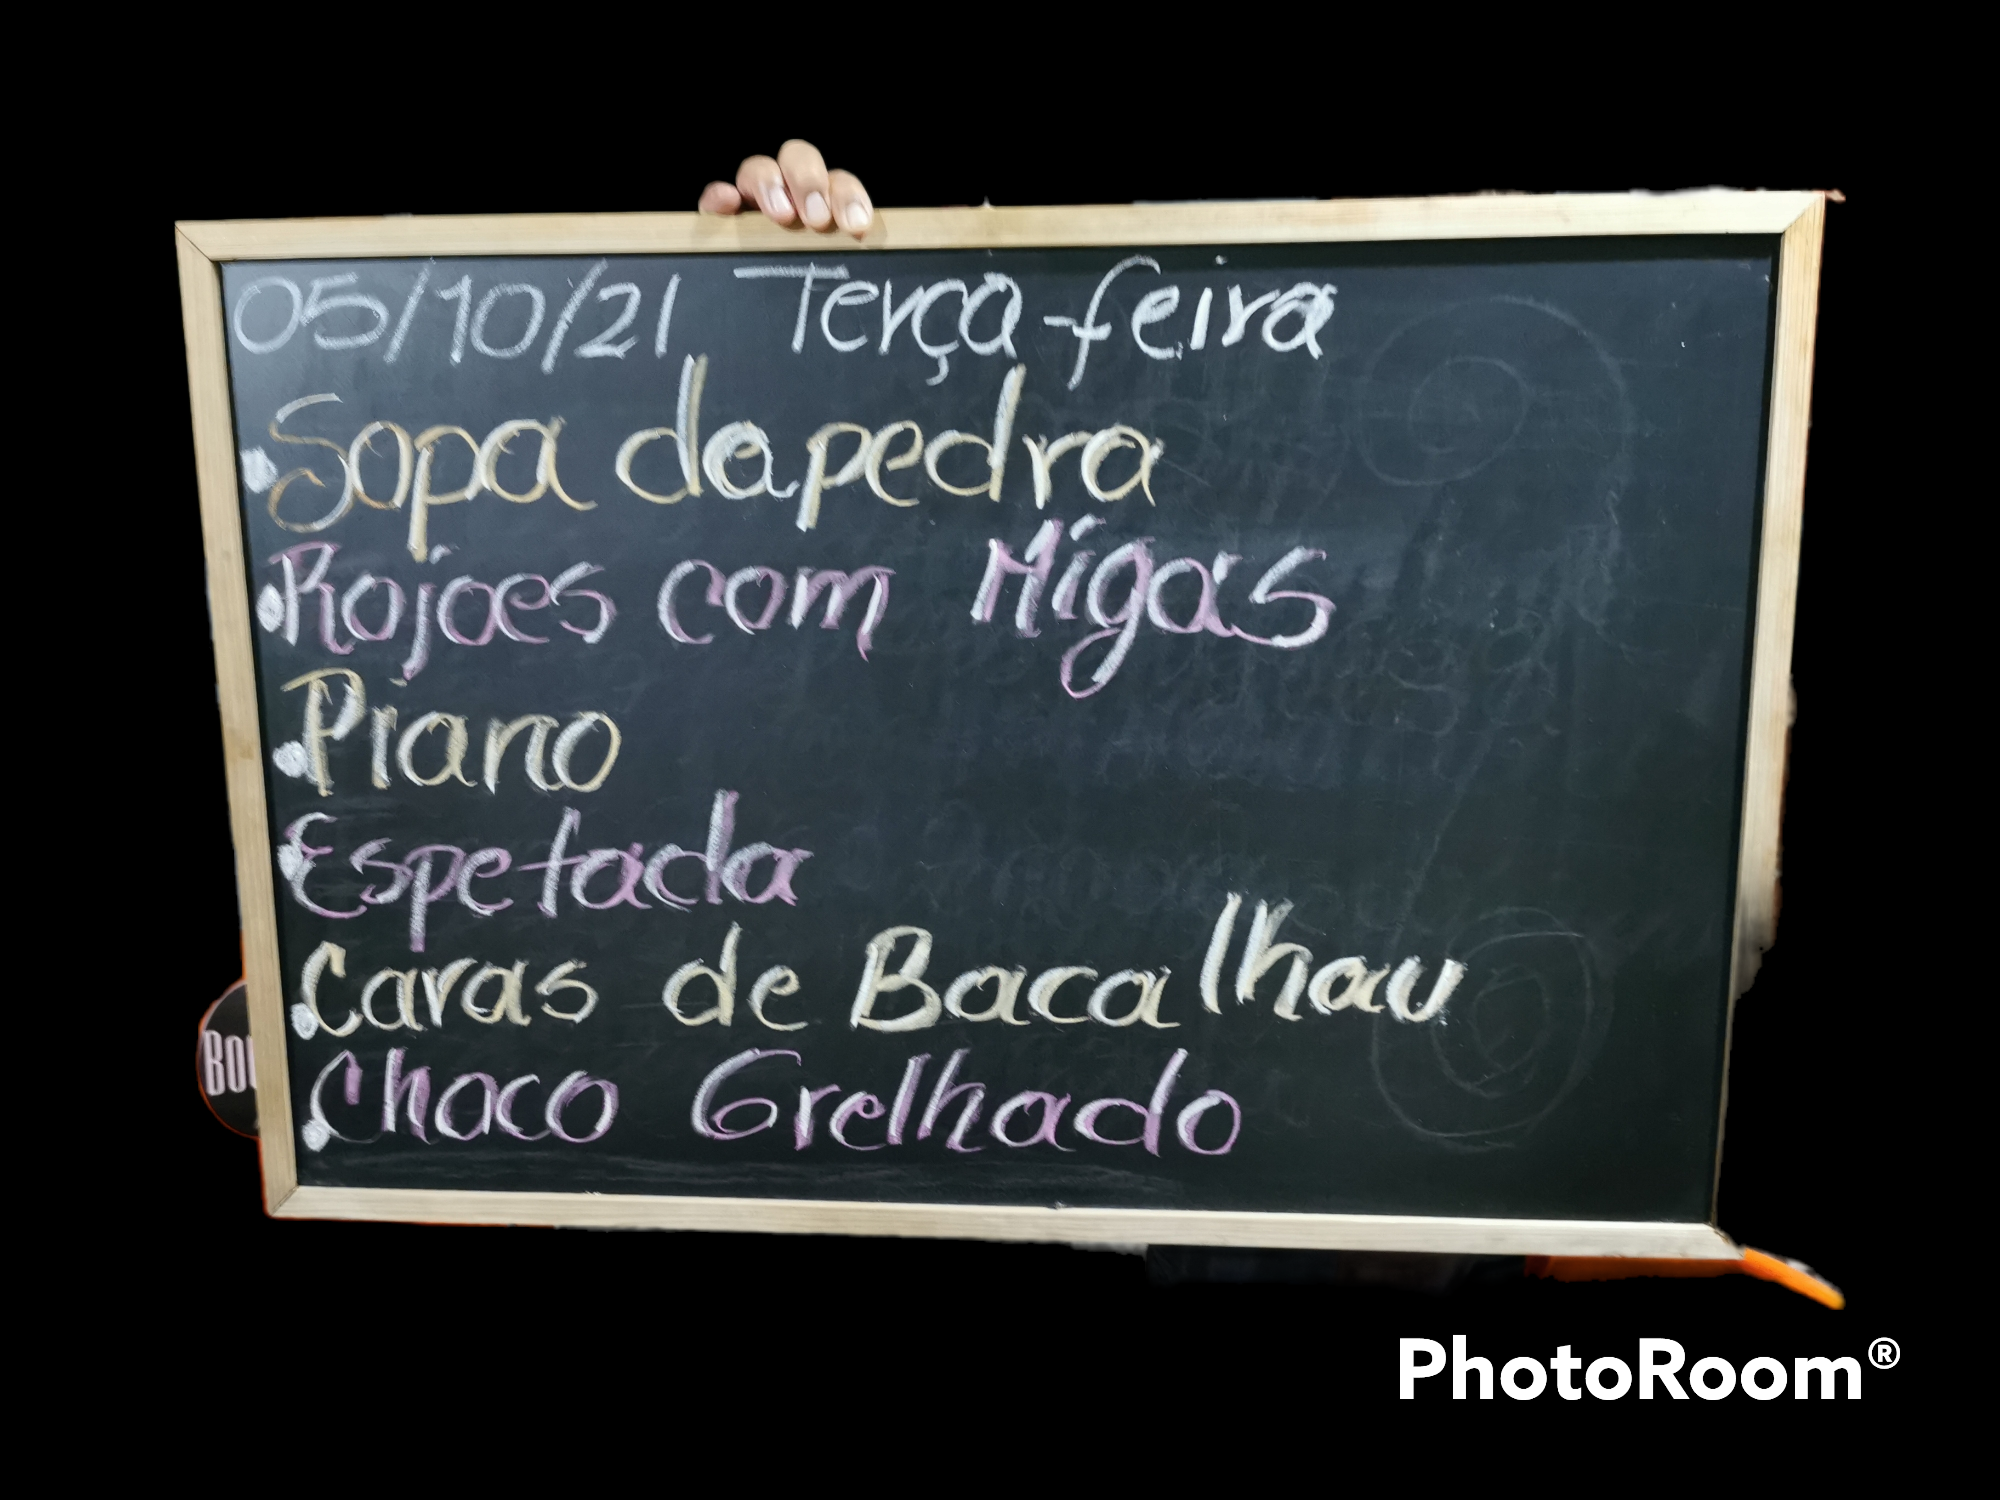 05/10/21 Terça-feira
• Sopa da pedra
• Rojoes com Migas
• Piano
• Espetada
• Caras de Bacalhau
• Choco Grelhado
PhotoRoom®